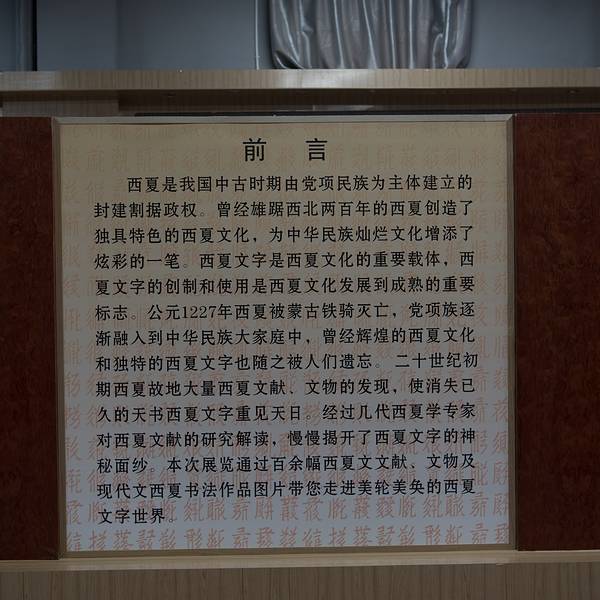 前 言
西夏是我国中古时期由党项民族为主体建立的
封建割据政权。曾经雄踞西北两百年的西夏创造了
独具特色的西夏文化，为中华民族灿烂文化增添了
炫彩的一笔。西夏文字是西夏文化的重要载体，西
夏文字的创制和使用是西夏文化发展到成熟的重要
标志。公元1227年西夏被蒙古铁骑灭亡，党项族逐
渐融入到中华民族大家庭中，曾经辉煌的西夏文化
和独特的西夏文字也随之被人们遗忘。二十世纪初
期西夏故地大量西夏文献、文物的发现，使消失已
久的天书西夏文字重见天日。经过几代西夏学专家
对西夏文献的研究解读，慢慢揭开了西夏文字的神
秘面纱。本次展览通过百余幅西夏文文献、文物及
现代文西夏书法作品图片带您走进美轮美奂的西夏
文字世界。